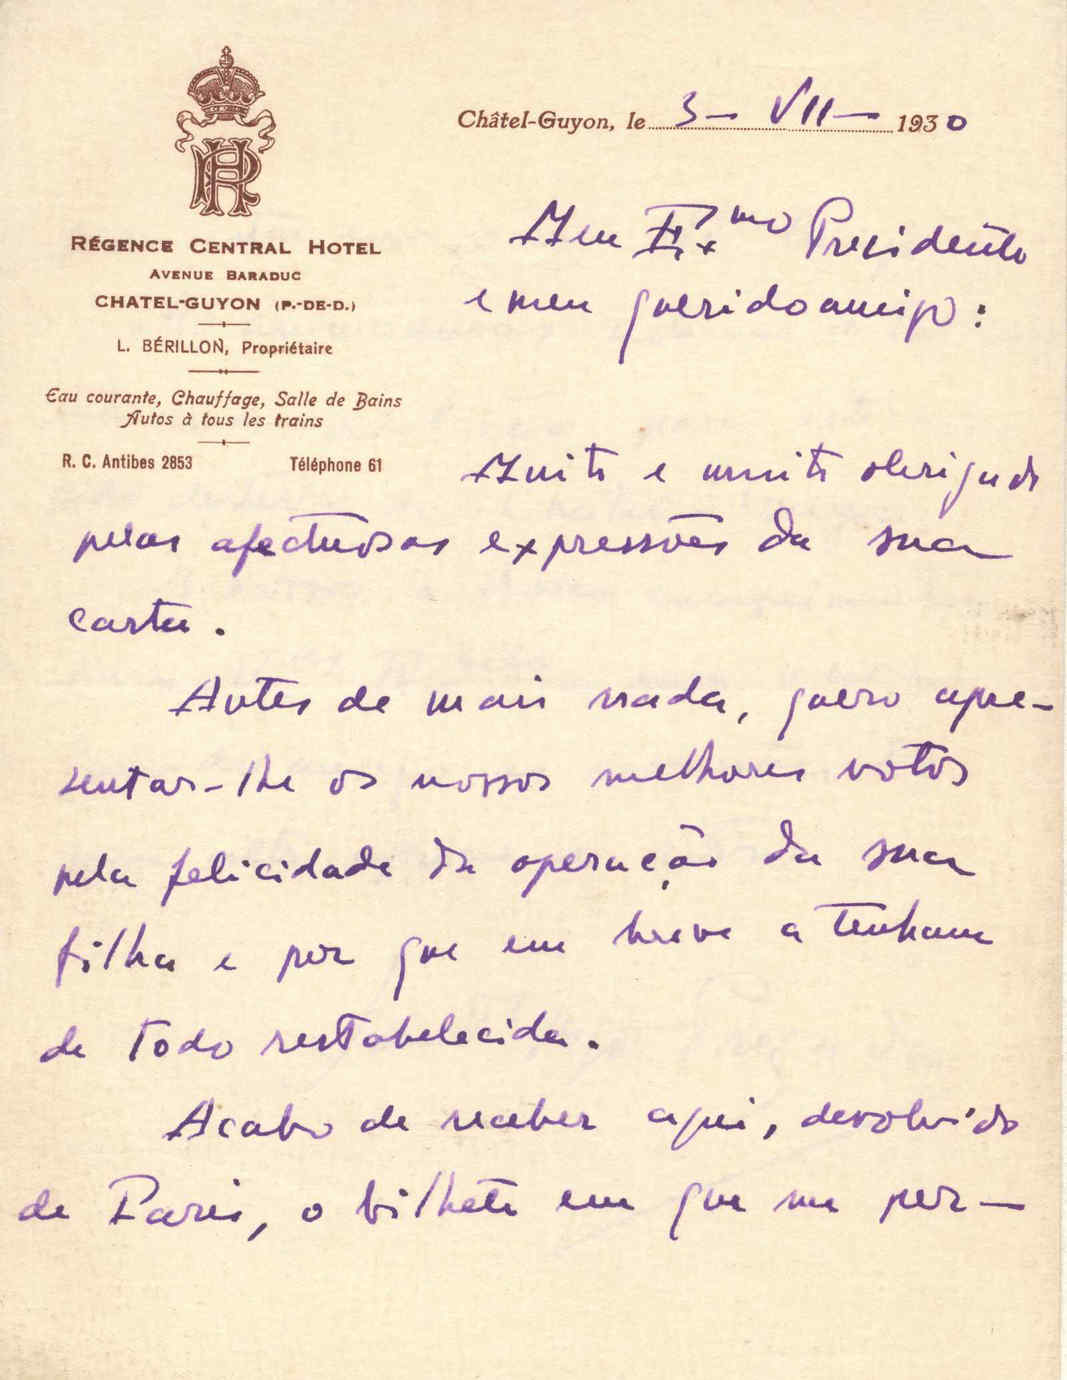 HR
RÉGENCE CENTRAL HOTEL
AVENUE BARADUC
CHATEL-GUYON (P.-DE-D.)
L. BÉRILLON, Propriétaire
Eau courante, Chauffage, Salle de Bains
Autos à tous les trains
R. C. Antibes 2853 Téléphone 61
Châtel-Guyon, le 3 - VII - 1930
Meu Ex.mo Presidente
e meu querido amigo:
Muito e muito obrigado
pelas afectuosas expressões da sua
carta.
Antes de mais nada, quero apre-
sentar-lhe os nossos melhores votos
pela felicidade da operação da sua
filha e por que em breve a tenham
de todo restabelecida.
Acabo de receber aqui, devolvido
de Paris, o bilhete em que me per-